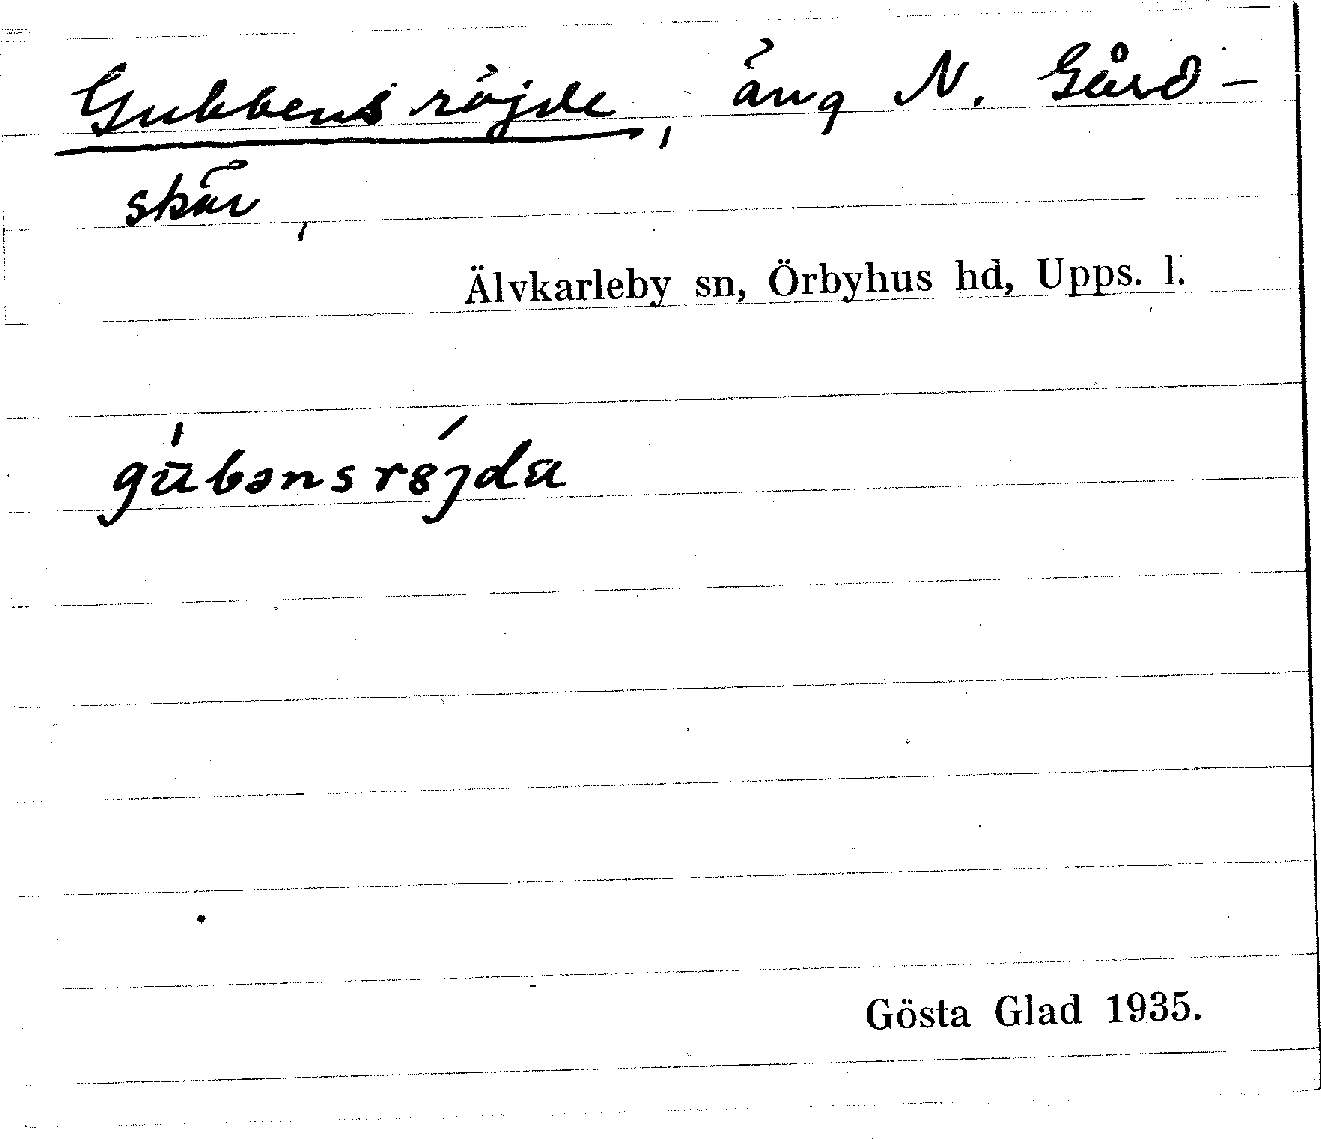 Gubbens röjde, äng N. Gård-
skär,
Älvkarleby sn, Örbyhus hd, Upps. l.
gúbənsrøjda
Gösta Glad 1935.